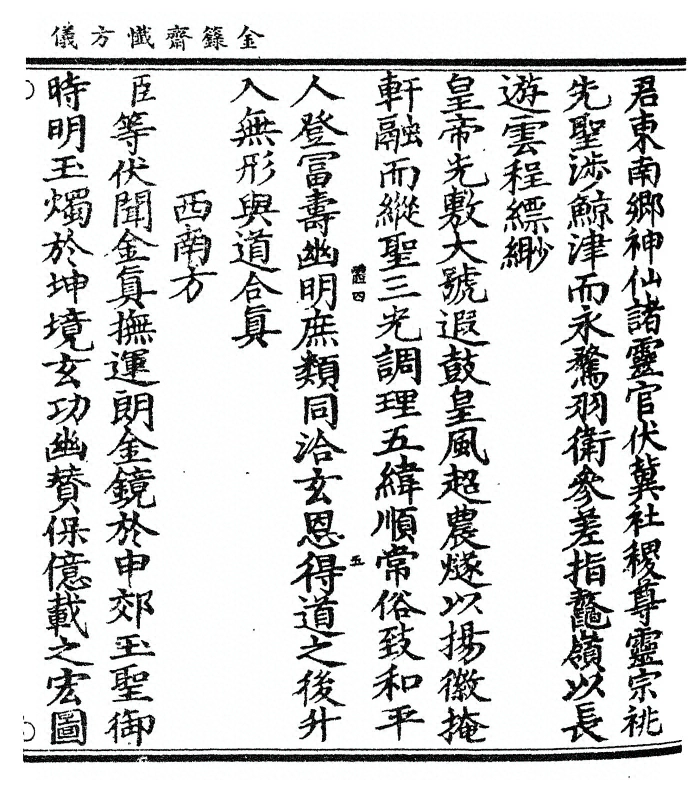 金籙齋懺方儀
君東南鄉神仙諸靈官伏冀社稷尊靈宗祧
先聖涉鯨津而永騖羽衛參差指鼇嶺以長
遊雲程縹緲
皇帝先敷大號遐鼓皇風超農燧以揚徽掩
軒融而縱聖三光調理五緯順常俗致和平
人登富壽幽明庶類同洽玄恩得道之後升
入無形與道合眞
西南方
臣等伏聞金眞撫運朗金鏡於申郊玉聖御
時明玉燭於坤境玄功幽贊保億載之宏圖